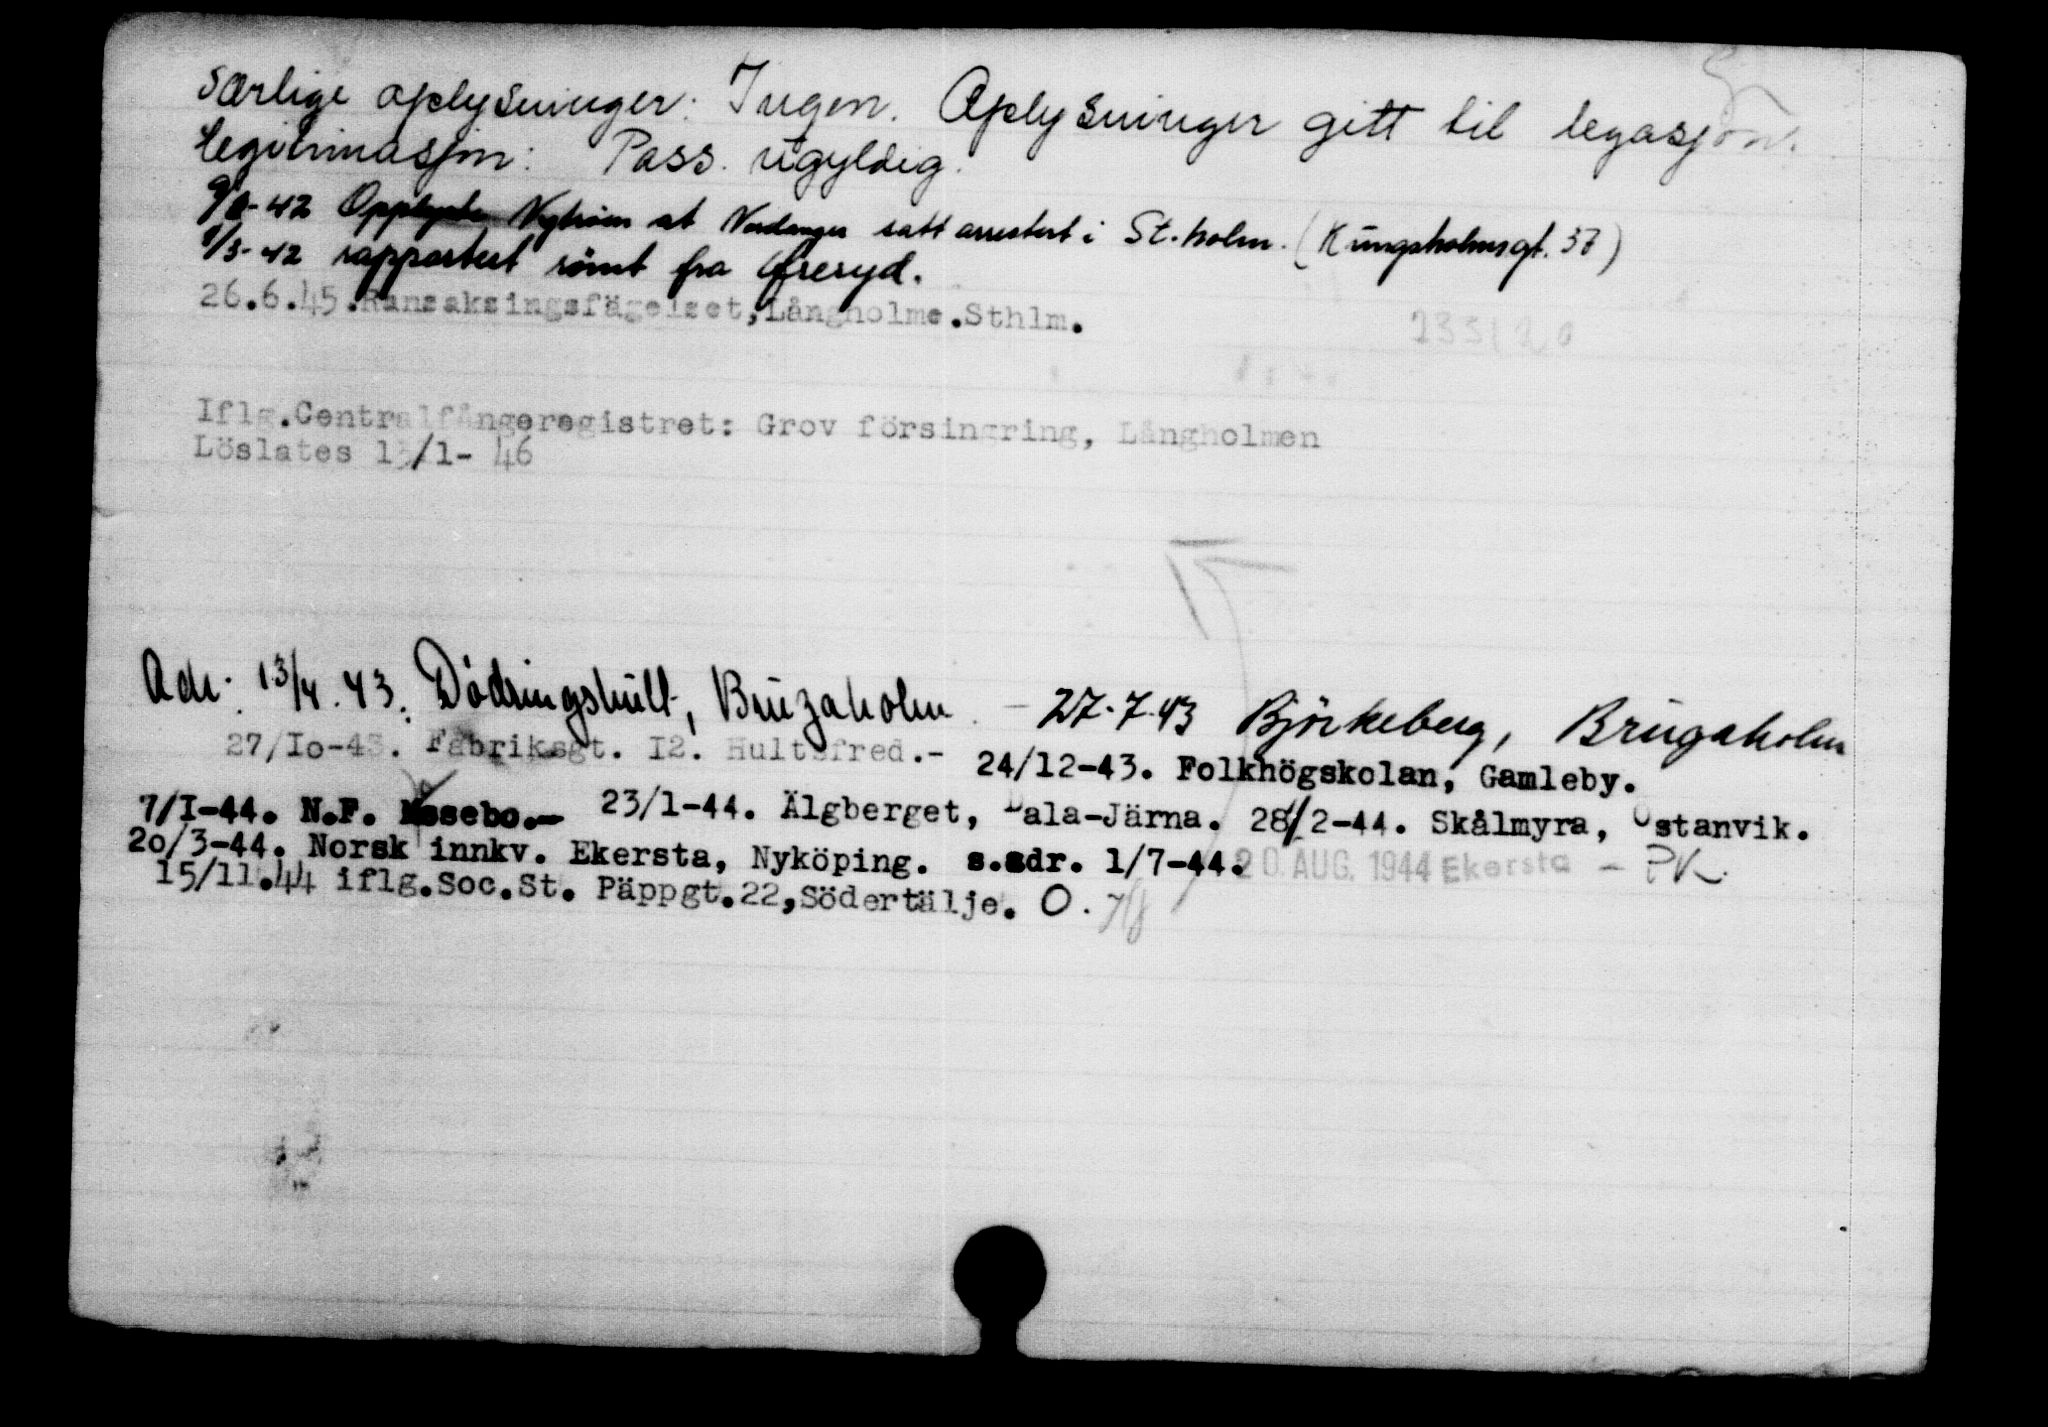 Særlige oplysninger: Ingen. Oplysninger gitt til legasjon.
Legitimasjon: Pass. ugyldig.
9/8-42 Opplyste Nyström at Nordanger satt arrestert i St.holm. (Kungsholmsgt. 37)
1/3-42 rapportert römt fra Öreryd.
26.6.45.Ransaksingsfägelset,Långholme.Sthlm.
Iflg.Centralfångeregistret: Grov försingring, Långholmen
Löslates 13/1- 46
Adr. 13/4.43. Dödringshult, Bruzaholm - 27.7.43 Björkeberg, Brugaholm
27/Io-43. Fabriksgt. I2. Hultsfred.- 24/12-43. Folkhögskolan, Gamleby.
7/I-44. N.F. Mosebo.- 23/1-44. Älgberget, Dala-Järna. 28/2-44. Skålmyra, Östanvik.
2o/3-44. Norsk innkv. Ekersta, Nyköping. s.adr. 1/7-44. 20. AUG. 1944 Ekersta - PK.
15/11.44 iflg.Soc.St. Päppgt.22,Södertälje. O.